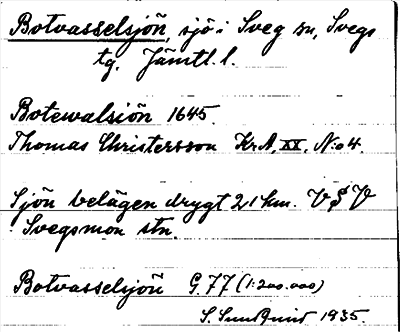 Botvasselsjön, sjö i Sveg sn, Svegs
tg. Jämtl. l.
Botewalsiön 1645.
Thomas Christersson Kr.A, XX, N:o 4.
Sjön belägen drygt 21 km. V$V
Svegsmon stn.
Botvasselsjön G. 77 (1:200.000)
S. Sundquist 1935